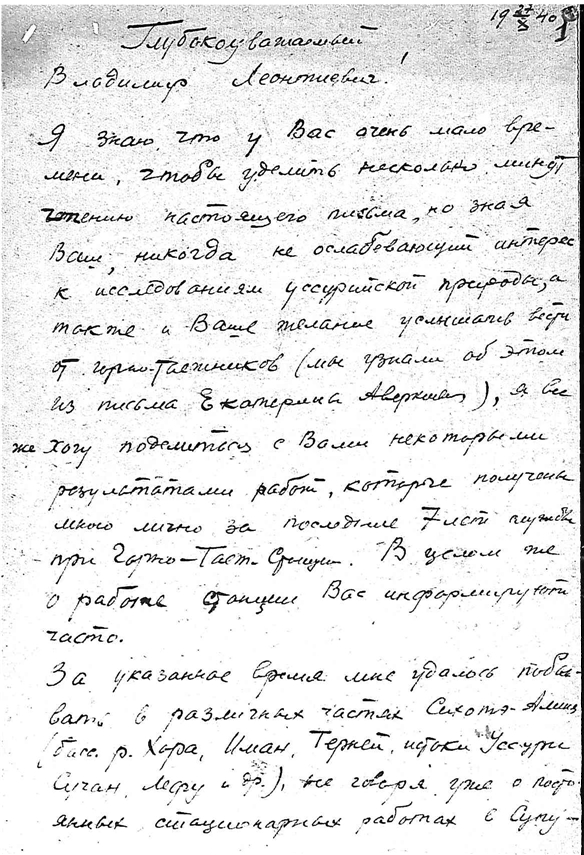 19 27/X 40
Глубокоуважаемый,
Владимир Леонтиевич.
Я знаю, что у Вас очень мало вре-
мени, чтобы уделить несколько минут
чтению настоящего письма, но зная
Ваш, никогда не ослабевающий интерес
к исследованиям уссурийской природы, а
также и Ваше желание услышать вести
от горно-таежников (мы узнали об этом
из письма Екатерины Аверкиевны), я все
же хочу поделиться с Вами некоторыми
результатами работ, которые получены
мною лично за последние 7 лет службы
при Горно-Таеж. Станции. В целом же
о работе станции Вас информируют
часто.
За указанное время мне удалось побы-
вать в различных частях Сихотэ-Алиня
(басс. р. Хора, Иман, Терней, истоки Уссури
Сучан, Лефу и др.), не говоря уже о посто-
янных стационарных работах в Супу-